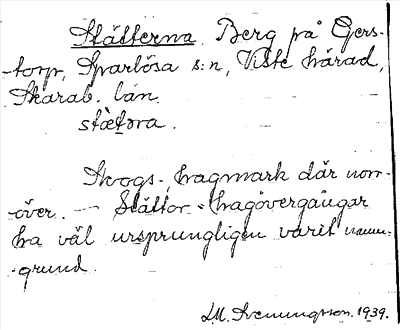 Stätterna. Berg på Gers-
torp, Sparlösa s:n, Viste härad,
Skarab. län.
stæ̀t̠əra.
Skogs-, hagmark där norr-
över. — Stättor = hagövergångar
ha väl ursprungligen varit namn-
grund.
Svenungsson. 1939.